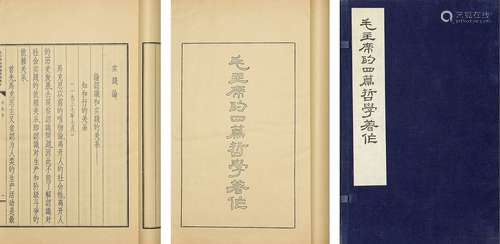 實踐論
論認識和實踐的關係——
知和行的關係
(一九三七年七月)
馬克思以前的唯物論,離開人的社會性,離開人
的歷史發展,去觀察認識問題,因此不能了解認識對
社會實踐的依賴關係,即認識對生產和階級鬥爭的
依賴關係。
首先,馬克思主義者認為人類的生產活動是最
毛主席的四篇哲學著作
毛主席的四篇哲學著作
艺狐在线
artfoxlive.com